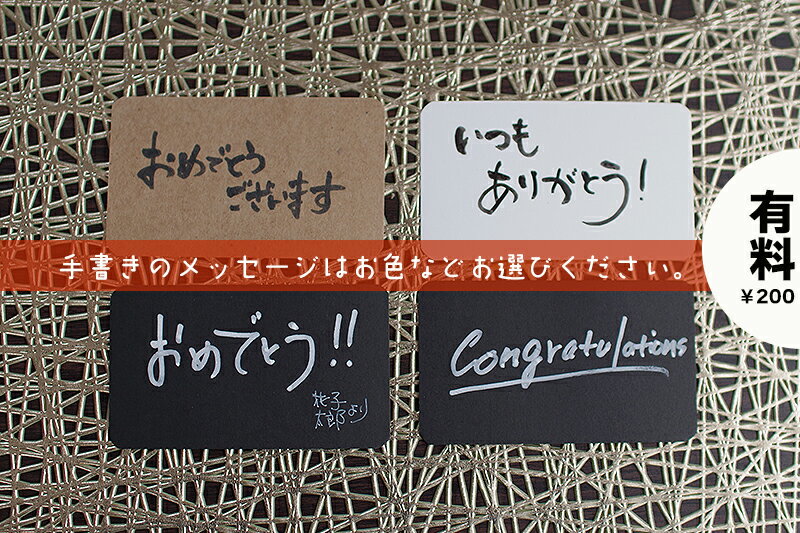 おめでとう
ございます
いつも
ありがとう!
手書きのメッセージはお色などお選びください。
有料
¥200
おめでとう!!
花子
太郎より
Congratulations